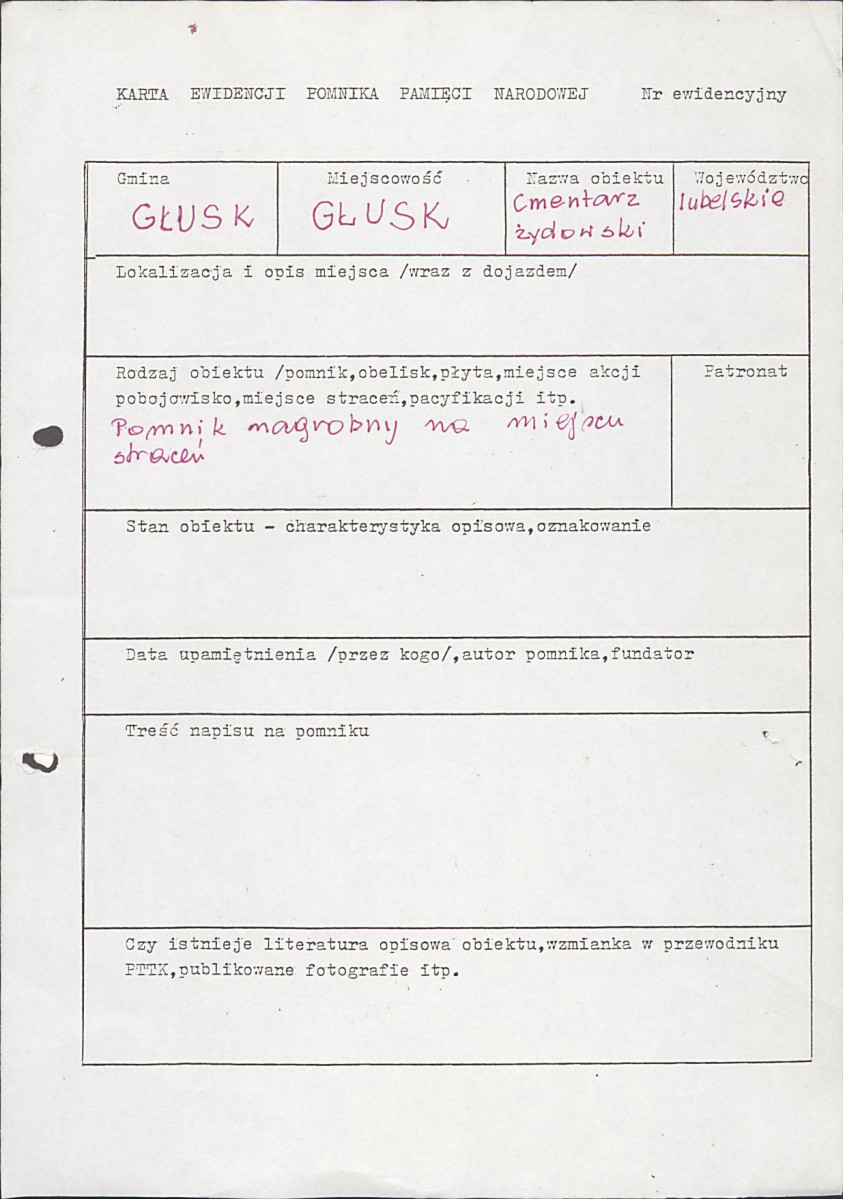 KARTA EWIDENCJI POMNIKA PAMIĘCI NARODOWEJ Nr ewidencyjny
Gmina Miejscowość Nazwa obiektu Województwo
GŁUSK GŁUSK Cmentarz żydowski lubelskie
Lokalizacja i opis miejsca /wraz z dojazdem/
Rodzaj obiektu /pomnik,obelisk,płyta,miejsce akcji Patronat
pobojowisko,miejsce straceń,pacyfikacji itp.
Pomnik nagrobny na miejscu
straceń
Stan obiektu - charakterystyka opisowa,oznakowanie
Data upamiętnienia /przez kogo/,autor pomnika,fundator
Treść napisu na pomniku
Czy istnieje literatura opisowa obiektu,wzmianka w przewodniku
PTTK,publikowane fotografie itp.